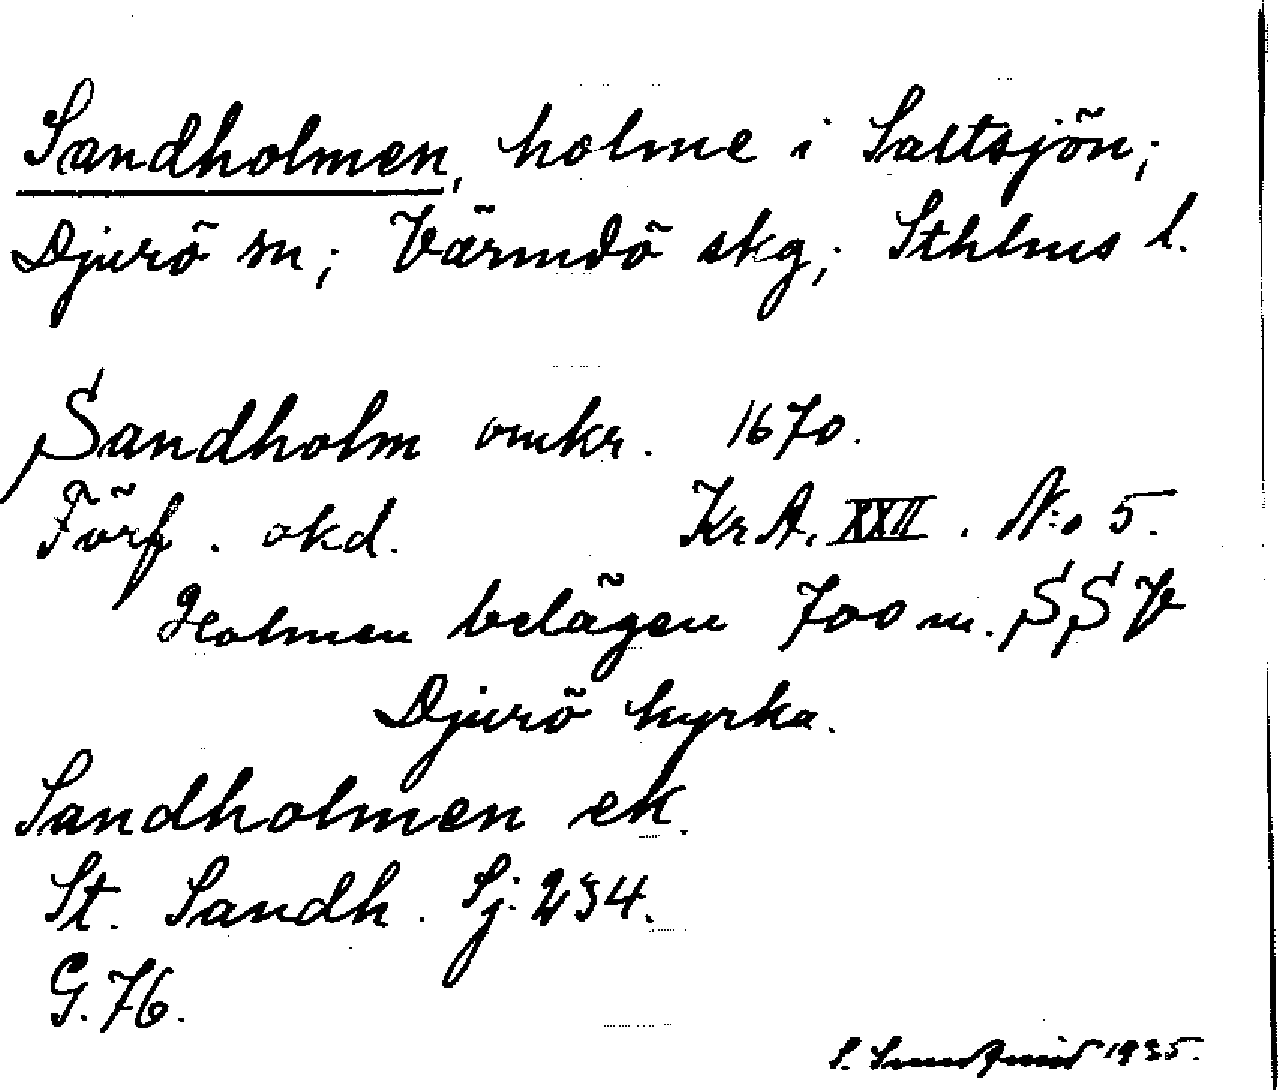 Sandholmen, holme i Saltsjön;
Djurö sn; Värmdö skg; Sthlms l.
Sandholm omkr. 1670.
Förf. okd. Kr A. XXII. N:o 5.
Holmen belägen 700 m. SSV
Djurö kyrka.
Sandholmen ek.
St. Sandh. Sj. 234.
G. 76.
S. 1935.